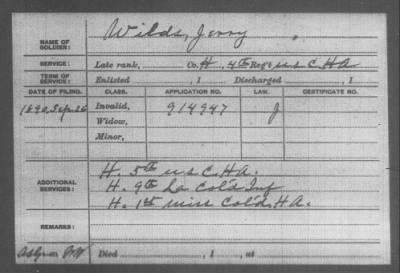 NAME OF SOLDIER: Wilds, Jerry
SERVICE: Late rank, Co. H, 4th Reg't U S C H A
TERM OF SERVICE: Enlisted , 1 Discharged , 1
DATE OF FILING. CLASS. APPLICATION NO. LAW. CERTIFICATE NO.
1890, Sep. 26 Invalid, 914947 J
Widow,
Minor,
ADDITIONAL SERVICES: H. 5th U S C H A.
H. 9th La Col'd Inf
H. 1st Miss Col'd. H A.
REMARKS:
Died , 1 , at